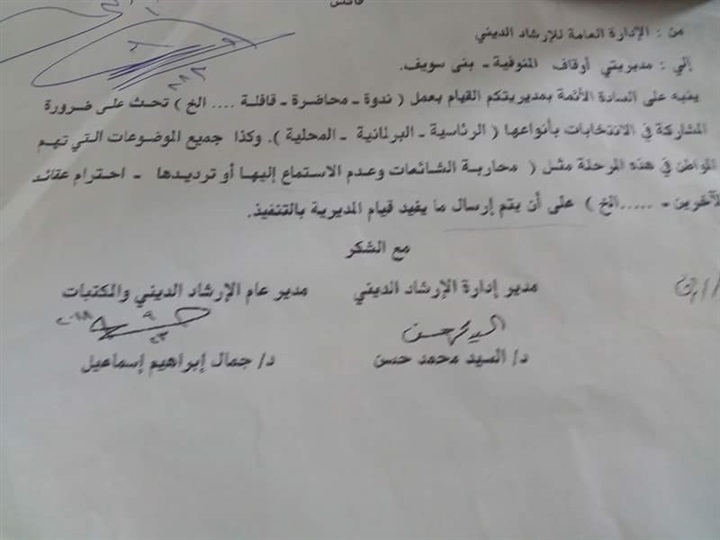 فاكس
من : الإدارة العامة للإرشاد الديني
إلي : مديريتي أوقاف المنوفية - بنى سويف.
ينبه على السادة الأئمة بمديريتكم القيام بعمل ( ندوة - محاضرة - قافلة .... الخ ) تحث على ضرورة
المشاركة في الانتخابات بأنواعها ( الرئاسية - البرلمانية - المحلية ). وكذا جميع الموضوعات التي تهم
المواطن في هذه المرحلة مثل ( محاربة الشائعات وعدم الاستماع إليها أو ترديدها - احترام عقائد
الآخرين - ..... الخ ) على أن يتم إرسال ما يفيد قيام المديرية بالتنفيذ.
مع الشكر
مدير إدارة الإرشاد الديني مدير عام الإرشاد الديني والمكتبات
السيد محمد حسن
د/ السيد محمد حسن د/ جمال إبراهيم إسماعيل